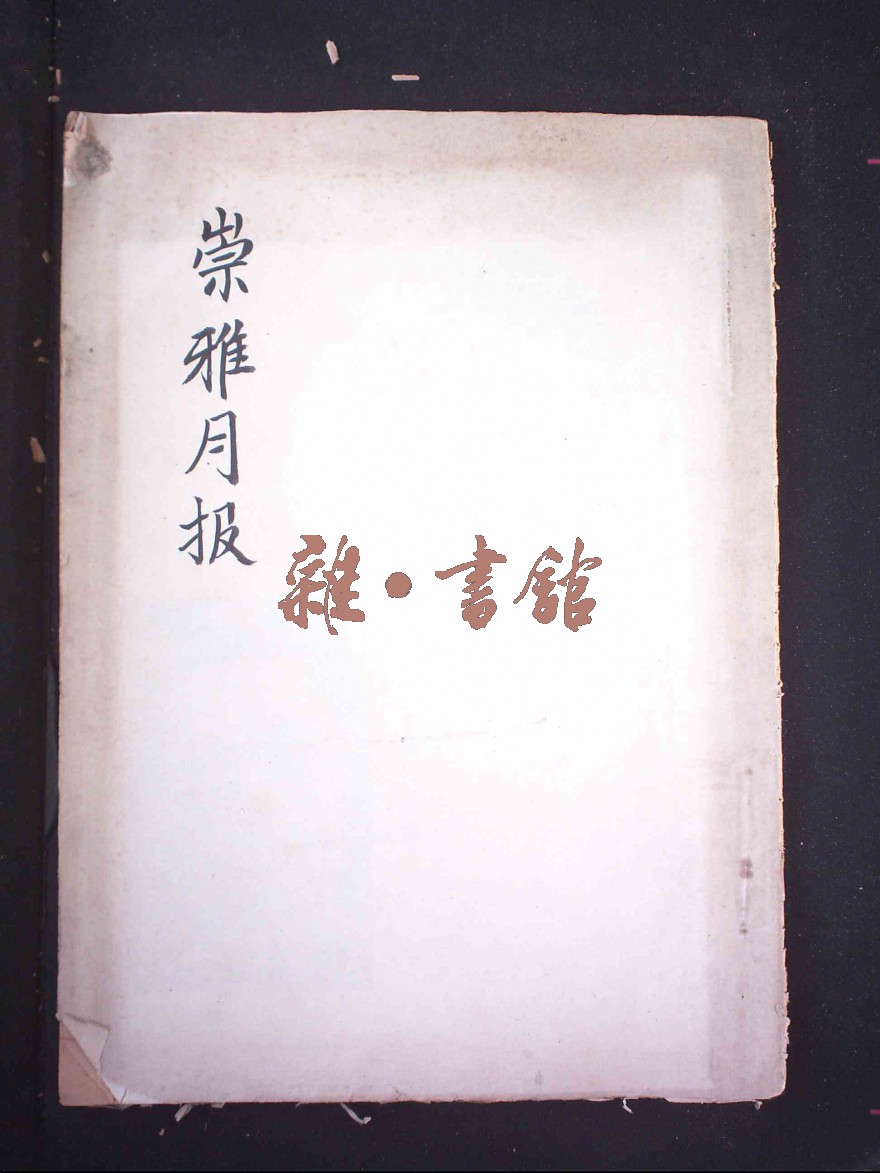 崇雅月报
雜·書舘